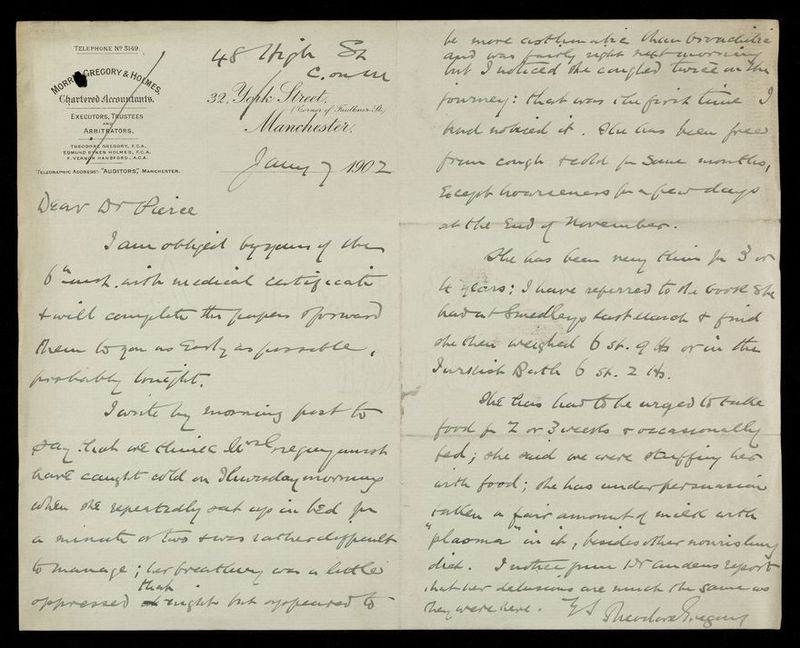 TELEPHONE Nº 3149.
MORRIS, GREGORY & HOLMES,
Chartered Accountants.
EXECUTORS, TRUSTEES
AND
ARBITRATORS.
THEODORE GREGORY, F.C.A.
EDMUND SYKES HOLMES, F.C.A.
F. VERNON HANSFORD, A.C.A.
TELEGRAPHIC ADDRESS: "AUDITORS," MANCHESTER.
48 High St
C. on M
32, York Street,
(Corner of Faulkner St.)
Manchester.
Jany 7 1902
Dear Dr Pierce
I am obliged by yours of the
6th inst. with medical certificate
& will complete the papers & forward
them to you as early as possible,
probably tonight.
I write by morning post to
say that we think Mrs Gregory must
have caught cold on Thursday morning
when she repeatedly sat up in bed for
a minute or two & was rather difficult
to manage; her breathing was a little
oppressed that night but appeared to
be more asthmatic than bronchitic
and was fairly right next morning
but I noticed she coughed twice on the
journey: that was the first time I
had noticed it. She has been free
from cough & cold for some months,
except hoarseness for a few days
at the end of November.
She has been very thin for 3 or
4 years; I have referred to the book she
had at Smedleys last March & find
she then weighed 6 st. 9 lbs or in the
Turkish Bath 6 st. 2 lbs.
She has had to be urged to take
food for 2 or 3 weeks & occasionally
fed; she said we were stuffing her
with food; she has under persuasion
taken a fair amount of milk with
"plasmon" in it, besides other nourishing
diet. I notice from Dr report
that her delusions are much the same as
they were here. Yrs Theodore Gregory